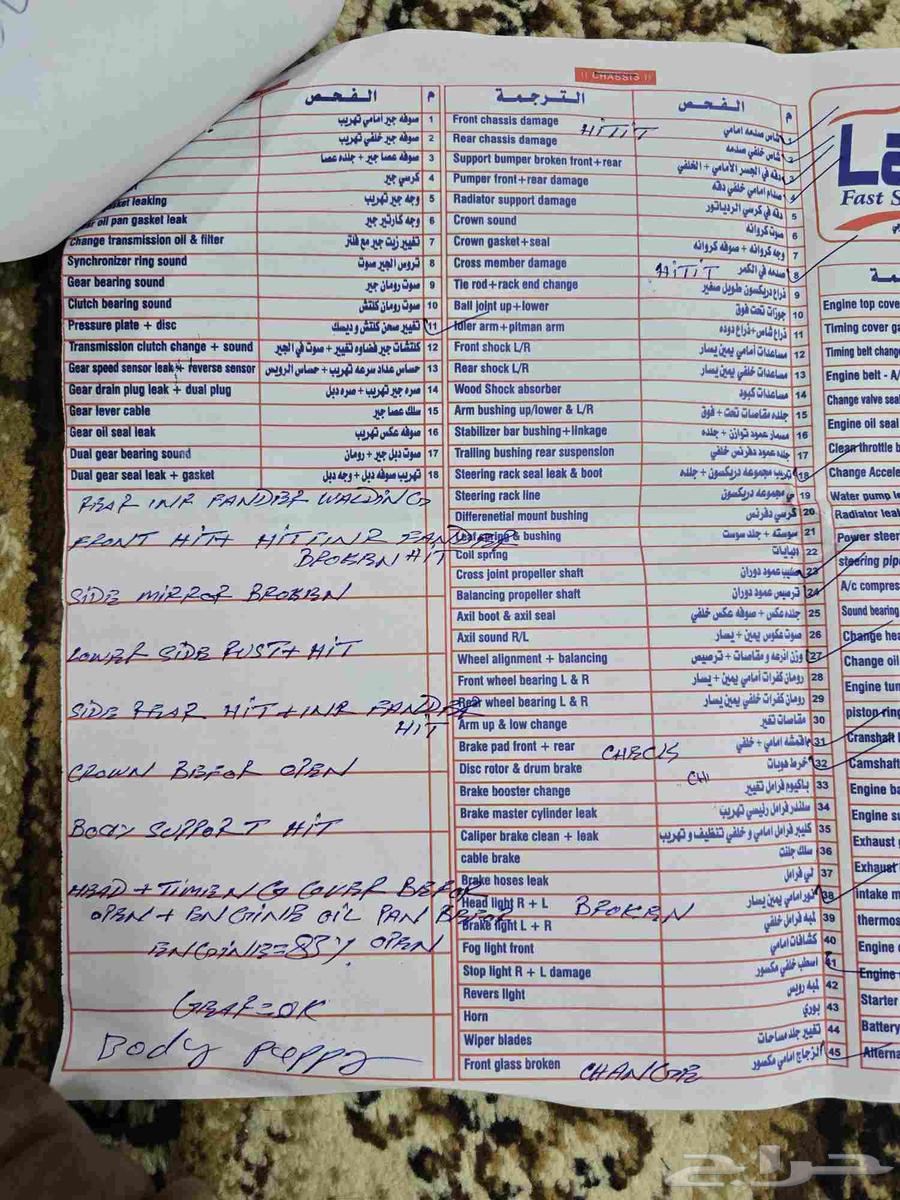 !! CHASSIS !!
م الفحص
1 سوفه جير امامي تهريب
2 سوفه جير خلفي تهريب
3 سوفه عصا جير + جلده عصا
4 كرسي جير
leaking وجه جير تهريب 5
oil pan gasket leak وجه كارتير جير 6
Change transmission oil & filter تغيير زيت جير مع فلتر 7
Synchronizer ring sound تروس الجير صوت 8
Gear bearing sound صوت رومان جير 9
Clutch bearing sound صوت رومان كلتش 10
Pressure plate + disc تغيير صحن كلتش و ديسك 11
Transmission clutch change + sound كلتشات جير فضاوه تغيير + صوت في الجير 12
Gear speed sensor leak + reverse sensor حساس عداد سرعه تهريب + حساس الرويس 13
Gear drain plug leak + dual plug صره جير تهريب + صره دبل 14
Gear lever cable سلك عصا جير 15
Gear oil seal leak سوفه عكس تهريب 16
Dual gear bearing sound صوت دبل جير + رومان 17
Dual gear seal leak + gasket تهريب سوفه دبل + وجه دبل 18
REAR INR FANDER WALDING
FRONT HIT+ HIT INR FANDER
BROKEN HIT
SIDE MIRROR BROKEN
LOWER SIDE RUST+ HIT
SIDE REAR HIT + INR FANDER
HIT
CROWN BEFOR OPEN
BODY SUPPORT HIT
HEAD + TIMENCG COVER BEFOR
OPEN + ENGINE OIL PAN BEFOR
OPEN
ENGINE=83%
GEAR=OK
Body
الترجمة الفحص م
Front chassis damage HITIT شاس صدمه امامي
Rear chassis damage شاس خلفي صدمه
Support bumper broken front+rear دقه في الجسر الأمامي + الخلفي
Pumper front+rear damage صدام امامي خلفي دقه 4
Radiator support damage دقه في كرسي الردياتور 5
Crown sound صوت كروانه 6
Crown gasket+seal وجه كروانه + سوفه كروانه 7
Cross member damage HITIT صدمه في الكمر 8
Tie rod+rack end change ذراع دريكسون طويل صغير 9
Ball joint up+lower جوزات تحت فوق 10
Idler arm+pitman arm ذراع شاص+ذراع دوده 11
Front shock L/R مساعدات أمامي يمين يسار 12
Rear shock L/R مساعدات خلفي يمين يسار 13
Wood Shock absorber مساعدات كبود 14
Arm bushing up/lower & L/R جلده مقاصات تحت + فوق 15
Stabilizer bar bushing+linkage مسمار عمود توازن + جلده 16
Trailing bushing rear suspension جلده عمود دفرنس خلفي 17
Steering rack seal leak & boot تهريب مجموعه دريكسون + جلده 18
Steering rack line مجموعه دريكسون 19
Differenetial mount bushing كرسي دفرنس 20
Leaf spring & bushing سوسته + جلد سوست 21
Coil spring يايات 22
Cross joint propeller shaft صليب عمود دوران 23
Balancing propeller shaft ترصيص عمود دوران 24
Axil boot & axil seal جلده عكس + سوفه عكس خلفي 25
Axil sound R/L صوت عكوس يمين + يسار 26
Wheel alignment + balancing وزن اذرعه و مقاصات + ترصيص 27
Front wheel bearing L & R رومان كفرات أمامي يمين + يسار 28
Rear wheel bearing L & R رومان كفرات خلفي يمين + يسار 29
Arm up & low change مقاصات تغير 30
Brake pad front + rear CHECK اقمشه امامي + خلفي 31
Disc rotor & drum brake CH خرط هوبات 32
Brake booster change باكيوم فرامل تغيير 33
Brake master cylinder leak سلندر فرامل رئيسي تهريب 34
Caliper brake clean + leak كليبر فرامل امامي و خلفي تنظيف و تهريب 35
cable brake سلك جلنت 36
Brake hoses leak لي فرامل 37
Head light R + L BROKEN نور امامي يمين يسار 38
Brake light L + R لمبه فرامل خلفي 39
Fog light front كشافات امامي 40
Stop light R + L damage اسطب خلفي مكسور 41
Revers light لمبه رويس 42
Horn بوري 43
Wiper blades تغيير جلد مساحات 44
Front glass broken CHANGE الزجاج امامي مكسور 45
La
Fast S
Engine top cove
Timing cover ga
Timing belt chang
Engine belt - A/
Change valve sea
Engine oil seal
Clean throttle b
Change Accele
Water pump l
Radiator leak
Power steer
steering pipe
A/c compres
Sound bearing
Change hea
Change oil
Engine tun
piston ring
Cranshaft
Camshaft
Engine ba
Engine su
Exhaust
Exhaust
Intake m
thermos
Engine
Engine
Starter
Battery
Alterna
حراج